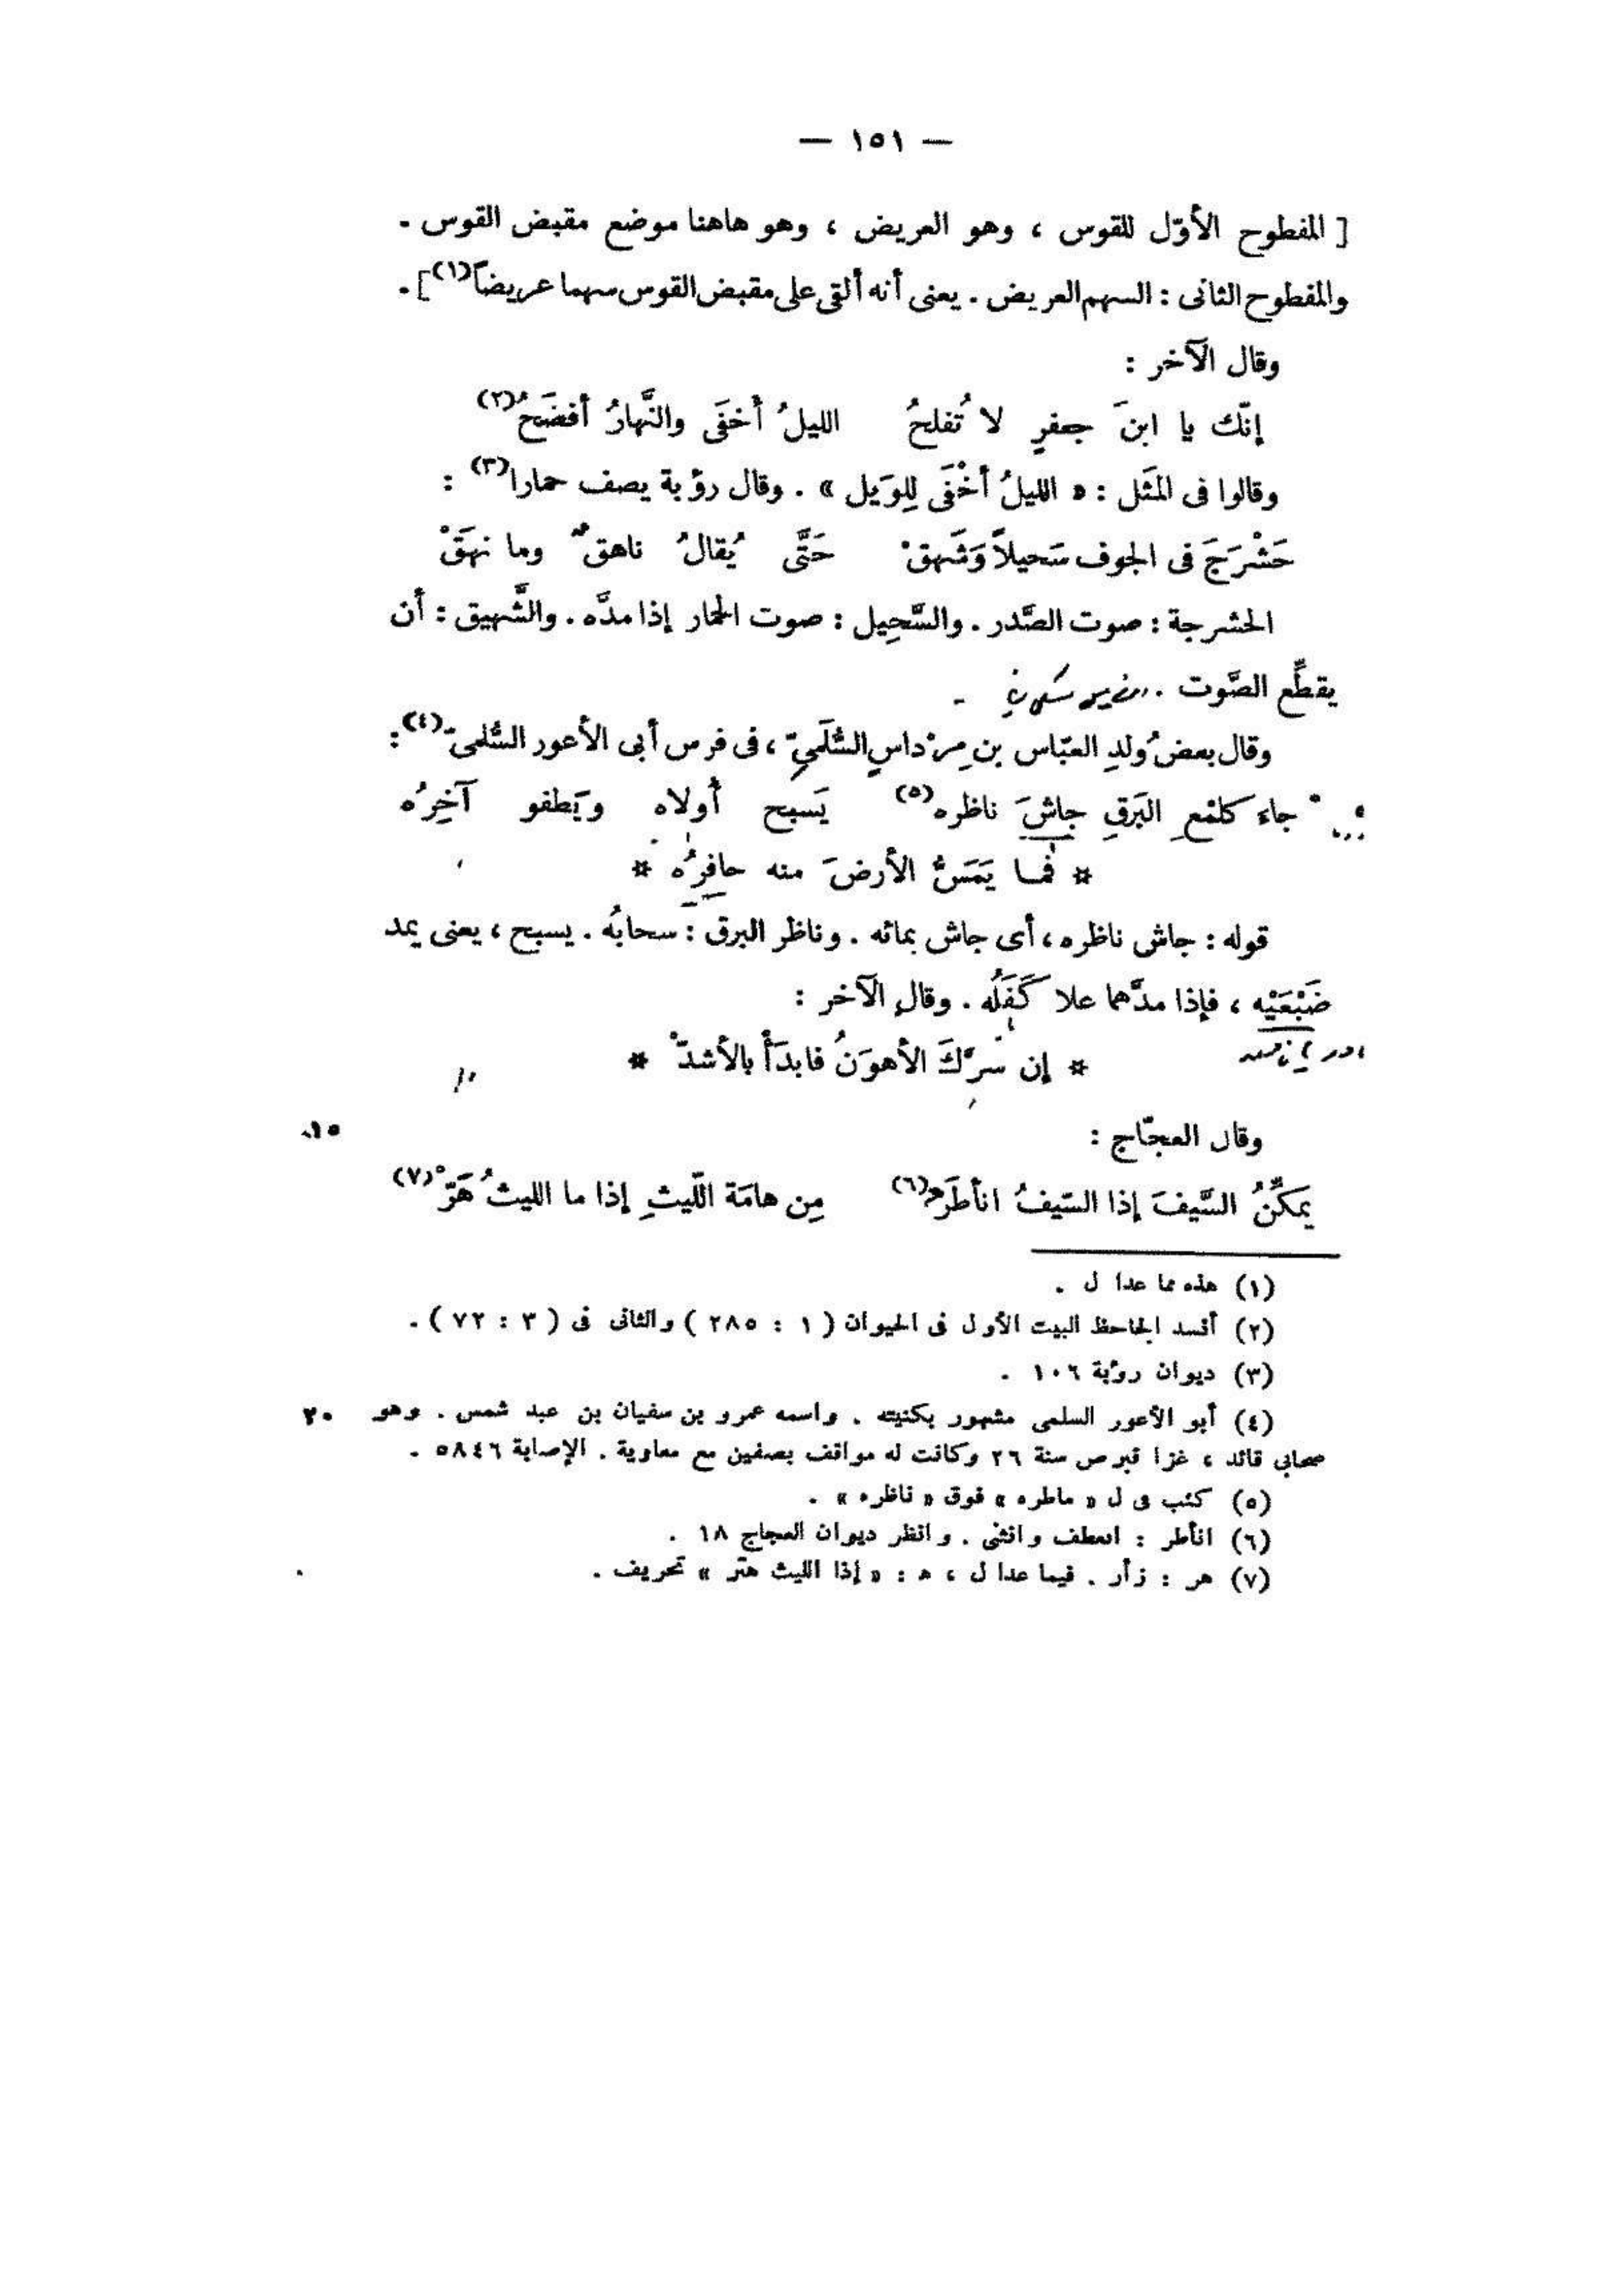 — ١٥١ —
[ المفطوح الأوّل للقوس ، وهو العريض ، وهو هاهنا موضع مقبض القوس .
والمفطوح الثانى : السهم العريض . يعنى أنه ألقى على مقبض القوس سهما عريضاً (١) ] .
وقال الآخر :
إنّك يا ابنَ جعفرٍ لا تُفلحُ الليلُ أخفَى والنَّهارُ أفضَحُ (٢)
وقالوا فى المَثَل : « الليلُ أخْفَى لِلوَيل » . وقال رؤبة يصف حمارا (٣) :
حَشْرَجَ فى الجوف سَحيلاً وَشَهقْ حَتَّى يُقالُ ناهقٌ وما نهَقْ
الحشرجة : صوت الصَّدر . والسَّحِيل : صوت الحمار إذا مدَّه . والشَّهيق : أن
يقطِّع الصَّوت .
وقال بعضُ ولدِ العبّاس بن مِرْداسٍ السُّلَميّ ، فى فرس أبى الأعور السُّلمىّ (٤) :
جاءَ كلمْعِ البَرقِ جاشَ ناظره (٥) يَسبح أولاه ويَطفو آخِرُه
* فما يَمَسُّ الأرضَ منه حافِرُه *
قوله : جاش ناظره ، أى جاش بمائه . وناظر البرق : سحابُه . يسبح ، يعنى يمد
ضَبْعَيْه ، فإذا مدَّهما علا كَفَلُه . وقال الآخر :
* إن سرَّكَ الأهوَنُ فابدَأْ بالأشدّْ *
وقال العجّاج : ١٥
يَمكِّنُ السَّيفَ إذا السّيفُ انأطَرْ (٦) مِن هامَة اللّيثِ إذا ما الليثُ هَرّْ (٧)
(١) هذه مما عدا ل .
(٢) أنشد الجاحظ البيت الأول فى الحيوان ( ١ : ٢٨٥ ) والثانى فى ( ٣ : ٧٢ ) .
(٣) ديوان رؤبة ١٠٦ .
(٤) أبو الأعور السلمى مشهور بكنيته . واسمه عمرو بن سفيان بن عبد شمس . وهو ٢٠
صحابى قائد ، غزا قبرص سنة ٢٦ وكانت له مواقف بصفين مع معاوية . الإصابة ٥٨٤٦ .
(٥) كتب فى ل « ماطره » فوق « ناظره » .
(٦) انأطر : انعطف وانثنى . وانظر ديوان العجاج ١٨ .
(٧) هر : زأر . فيما عدا ل ، ه : « إذا الليث هتر » تحريف .